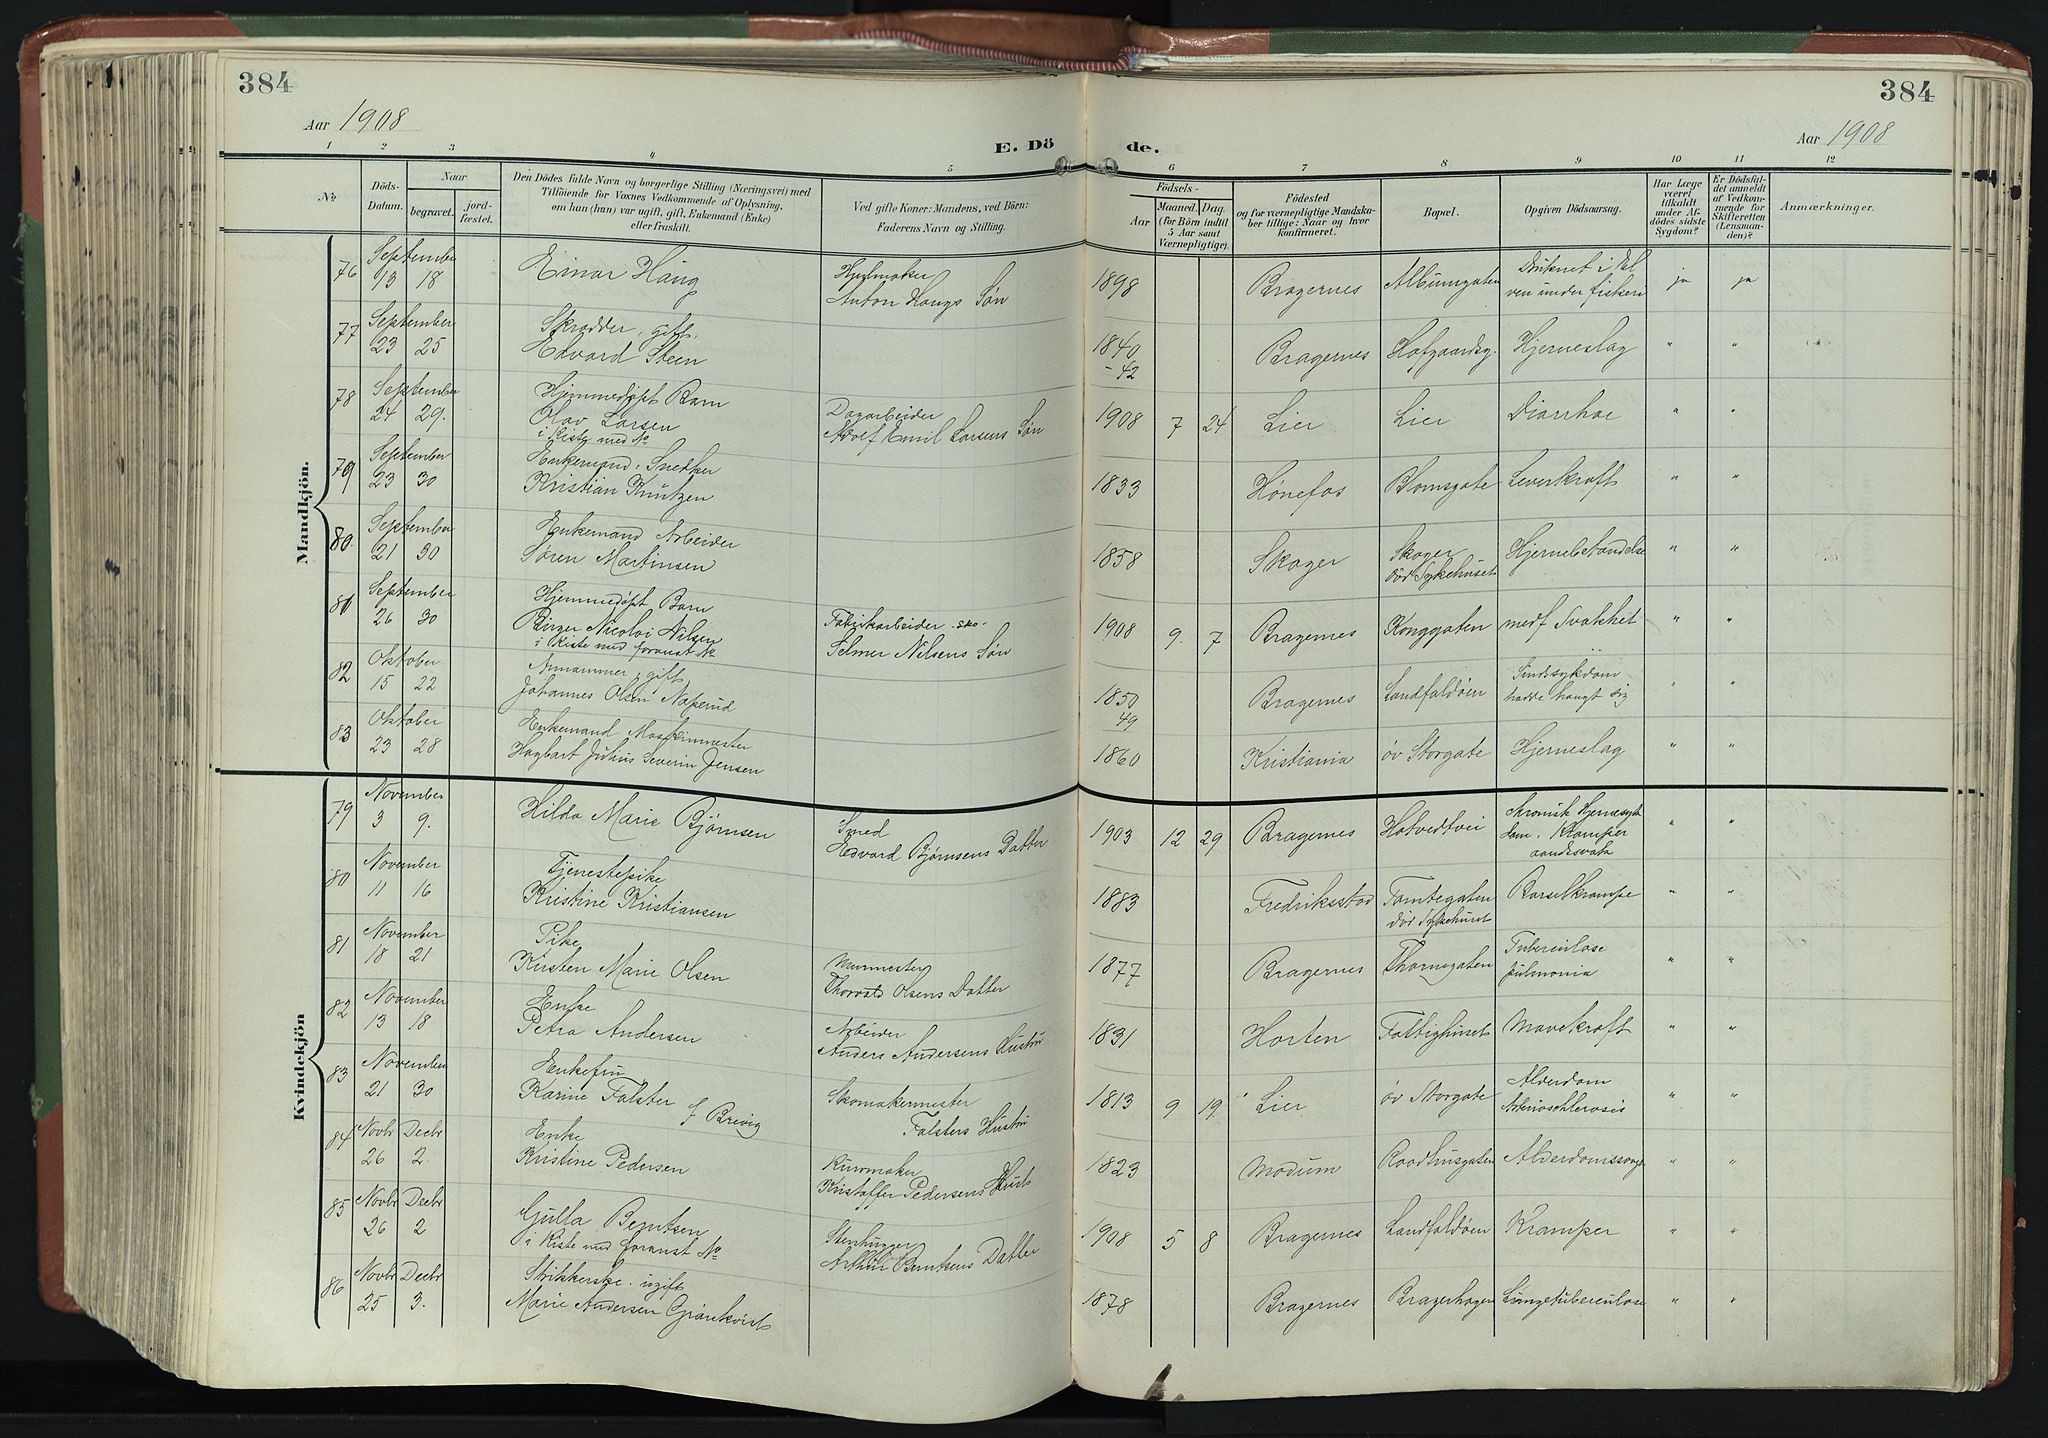 384
384
Aar 1908
Aar 1908
E. Dö
de.
1 2 3 4 5 6 7 8 9 10 11 12
No
Döds-
Datum.
Naar
begravet.
jord-
fæstet.
Den Dödes fulde Navn og borgerlige Stilling (Næringsvei) med
Tilföiende for Voxnes Vedkommende af Oplysning,
om han (hun) var ugift, gift, Enkemand (Enke)
eller fraskilt.
Ved gifte Koner: Mandens, ved Börn:
Faderens Navn og Stilling.
Födsels-
Aar
Maaned. Dag.
(for Börn indtil
5 Aar samt
Værnepligtige).
Födested
og for værnepligtige Mandska-
ber tillige: Naar og hvor
konfirmeret.
Bopæl.
Opgiven Dödsaarsag.
Har Læge
været
tilkaldt
under Af-
dödes sidste
Sygdom?
Er Dödsfal-
det anmeldt
af Vedkom-
mende for
Skifteretten
(Lensman-
den)?
Anmærkninger.
Mandkjön.
76 September 13 18 Einar Haug Hjulmaker Anton Haugs Søn 1898 Bragernes Albumsgaten Druknet i El
ven under fiskeri ja ja
77 September 23 25 Skrædder, gift,
Edvard Steen 1840
-42 Bragernes Hofgaardsg. Hjerneslag " "
78 September 24 29. Hjemmedøpt Barn
Olav Larsen
i Kiste med No
Dagarbeider
Adolf Emil Larsens Søn 1908 7 24 Lier Lier Diarrhoe " "
79 September 23 30 Enkemand, Snedker
Kristian Knutzen 1833 Hønefos Blomsgate Leverkræft " "
80. September 21 30 Enkemand Arbeider
Søren Martinsen 1858 Skoger Skoger
død Sykehuset Hjernebetændelse " "
81 September 26 30 Hjemmedøpt Barn
Birger Nicolai Nilsen
i Kiste med foranst No
Fabrikarbeider sko-
Selmer Nilsens Søn 1908 9. 7 Bragernes Konggaten medf Svakhet " "
82 Oktober 15 22 gift
Johannes Olsen Næperud 1850
49 Bragernes Landfaldøen Sindssykdom
hadde hængt sig " "
83 Oktober 23 28 Enkemand Maskinmester
Hagbart Julius Severin Jensen 1860 Kristiania øv Storgate Hjerneslag " "
Kvindekjön
79 November 3 9. Hilda Marie Bjørnsen Smed
Edvard Bjørnsens Datter 1903 12 29 Bragernes Hotvedtvei Kronisk Hjernesyk
dom. Kramper
aandssvak " "
80 November 11 16 Tjenestepike
Kristine Kristiansen 1883 Fredriksstad Tomtegaten
død Sykehuset Barselkrampe " "
81 November 18 21 Pike
Kirsten Marie Olsen Murmester
Thorvald Olsens Datter 1877 Bragernes Thornegaten Tuberculose
pulmonia " "
82 November 13 18 Enke
Petra Andersen Arbeider
Anders Andersens Hustru 1831 Horten Fattighuset Mavekræft " "
83 November 21 30 Enkefru
Karine Falster f Brevig Skomakermester
Falsters Hustru 1813 9 19 Lier øv Storgate Alderdom
Arterioschlerosis " "
84 Novbr 26 Decbr 2. Enke
Kristine Pedersen Kurvmaker
Kristoffer Pedersens Hust 1823 Modum Raadhusgaten Alderdomssvag " "
85 Novbr 26 Decbr 2 Gulla Berntsen
i Kiste med foranst No Stenhugger
Arthur Berntsens Datter 1908 5 8 Bragernes Landfaldøen Kramper " "
86 Novbr 25 Decbr 3. Strikkerske ugift
Marie Andersen Grankvist 1878 Bragernes Bragerhagen Lungetuberculose " "